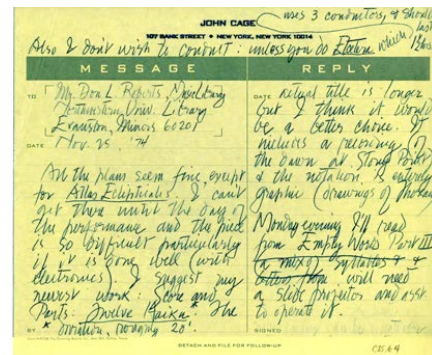 uses 3 conductors, & should last
JOHN CAGE
107 BANK STREET • NEW YORK, NEW YORK 10014
Also I don't wish to conduct: unless you do Etcetera which
MESSAGE
REPLY
TO Mr. Don L. Roberts, Music Library
Northwestern Univ. Library
Evanston, Illinois 60201
DATE Nov. 25, '74
All the plans seem fine except
for Atlas Eclipticalis. I can't
get there until the day of
the performance and the piece
is so difficult particularly
if it is done well (with
electronics). I suggest my
newest work: Score and
Parts: Twelve Haiku. The
BY * duration, roughly 20'.
DATE actual title is longer
but I think it would
be a better choice. It
includes a recording of
the dawn at Stony Point
& the notation is entirely
graphic (drawings of Thoreau
Monday evening I'll read
from Empty Words Part III
a mix of syllables &
letters from will need
a slide projector and asst.
to operate it.
SIGNED
DETACH AND FILE FOR FOLLOW-UP